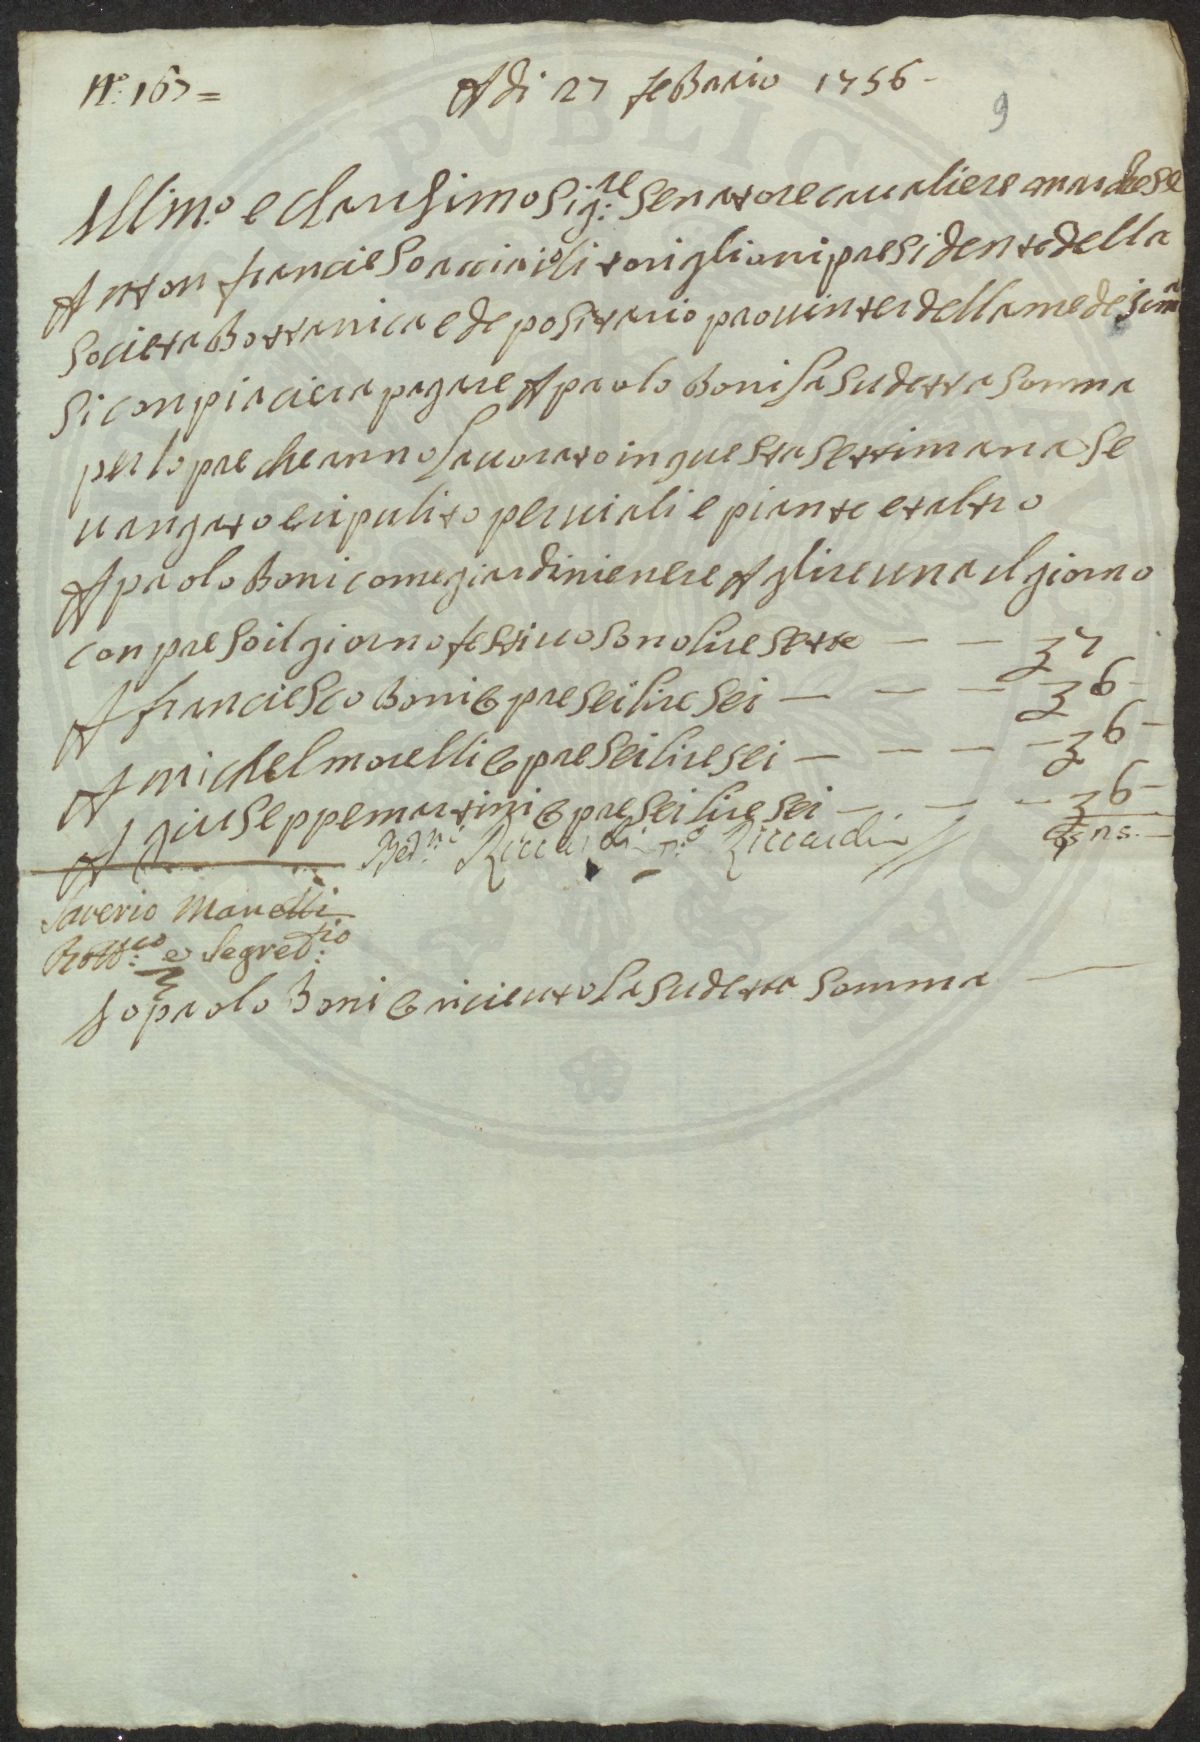 N.o 167 =
Adi 27 feBraio 1756 -
9
Illmo. e clarisimo Sig:re Senatore caualiere marchese
Anton franciesco acciaioli toriglioni presidente della
Societa Bottanica e depositario prouinter della medesima
Si conpiaciera pagare A paolo Boni la sudetta somma
per lo pre che anno lauorato in questa settimana Se
uangato e ripulito per uiali e piante et altro
A paolo Boni come giardinienere A glire una il giorno
conpreso il giorno festiuo sono lire sette — — 7
A franciesco Boni 6 pre sei lire sei — — — 6 -
A michel morelli 6 pre sei lire sei — — — — 6 -
A giuseppe martini 6 pre sei lire sei — — — 6 -
Riccardi Riccardi
Saverio Manetti
e Segret:rio
Io paolo Boni 6 riceuto la sudetta somma —